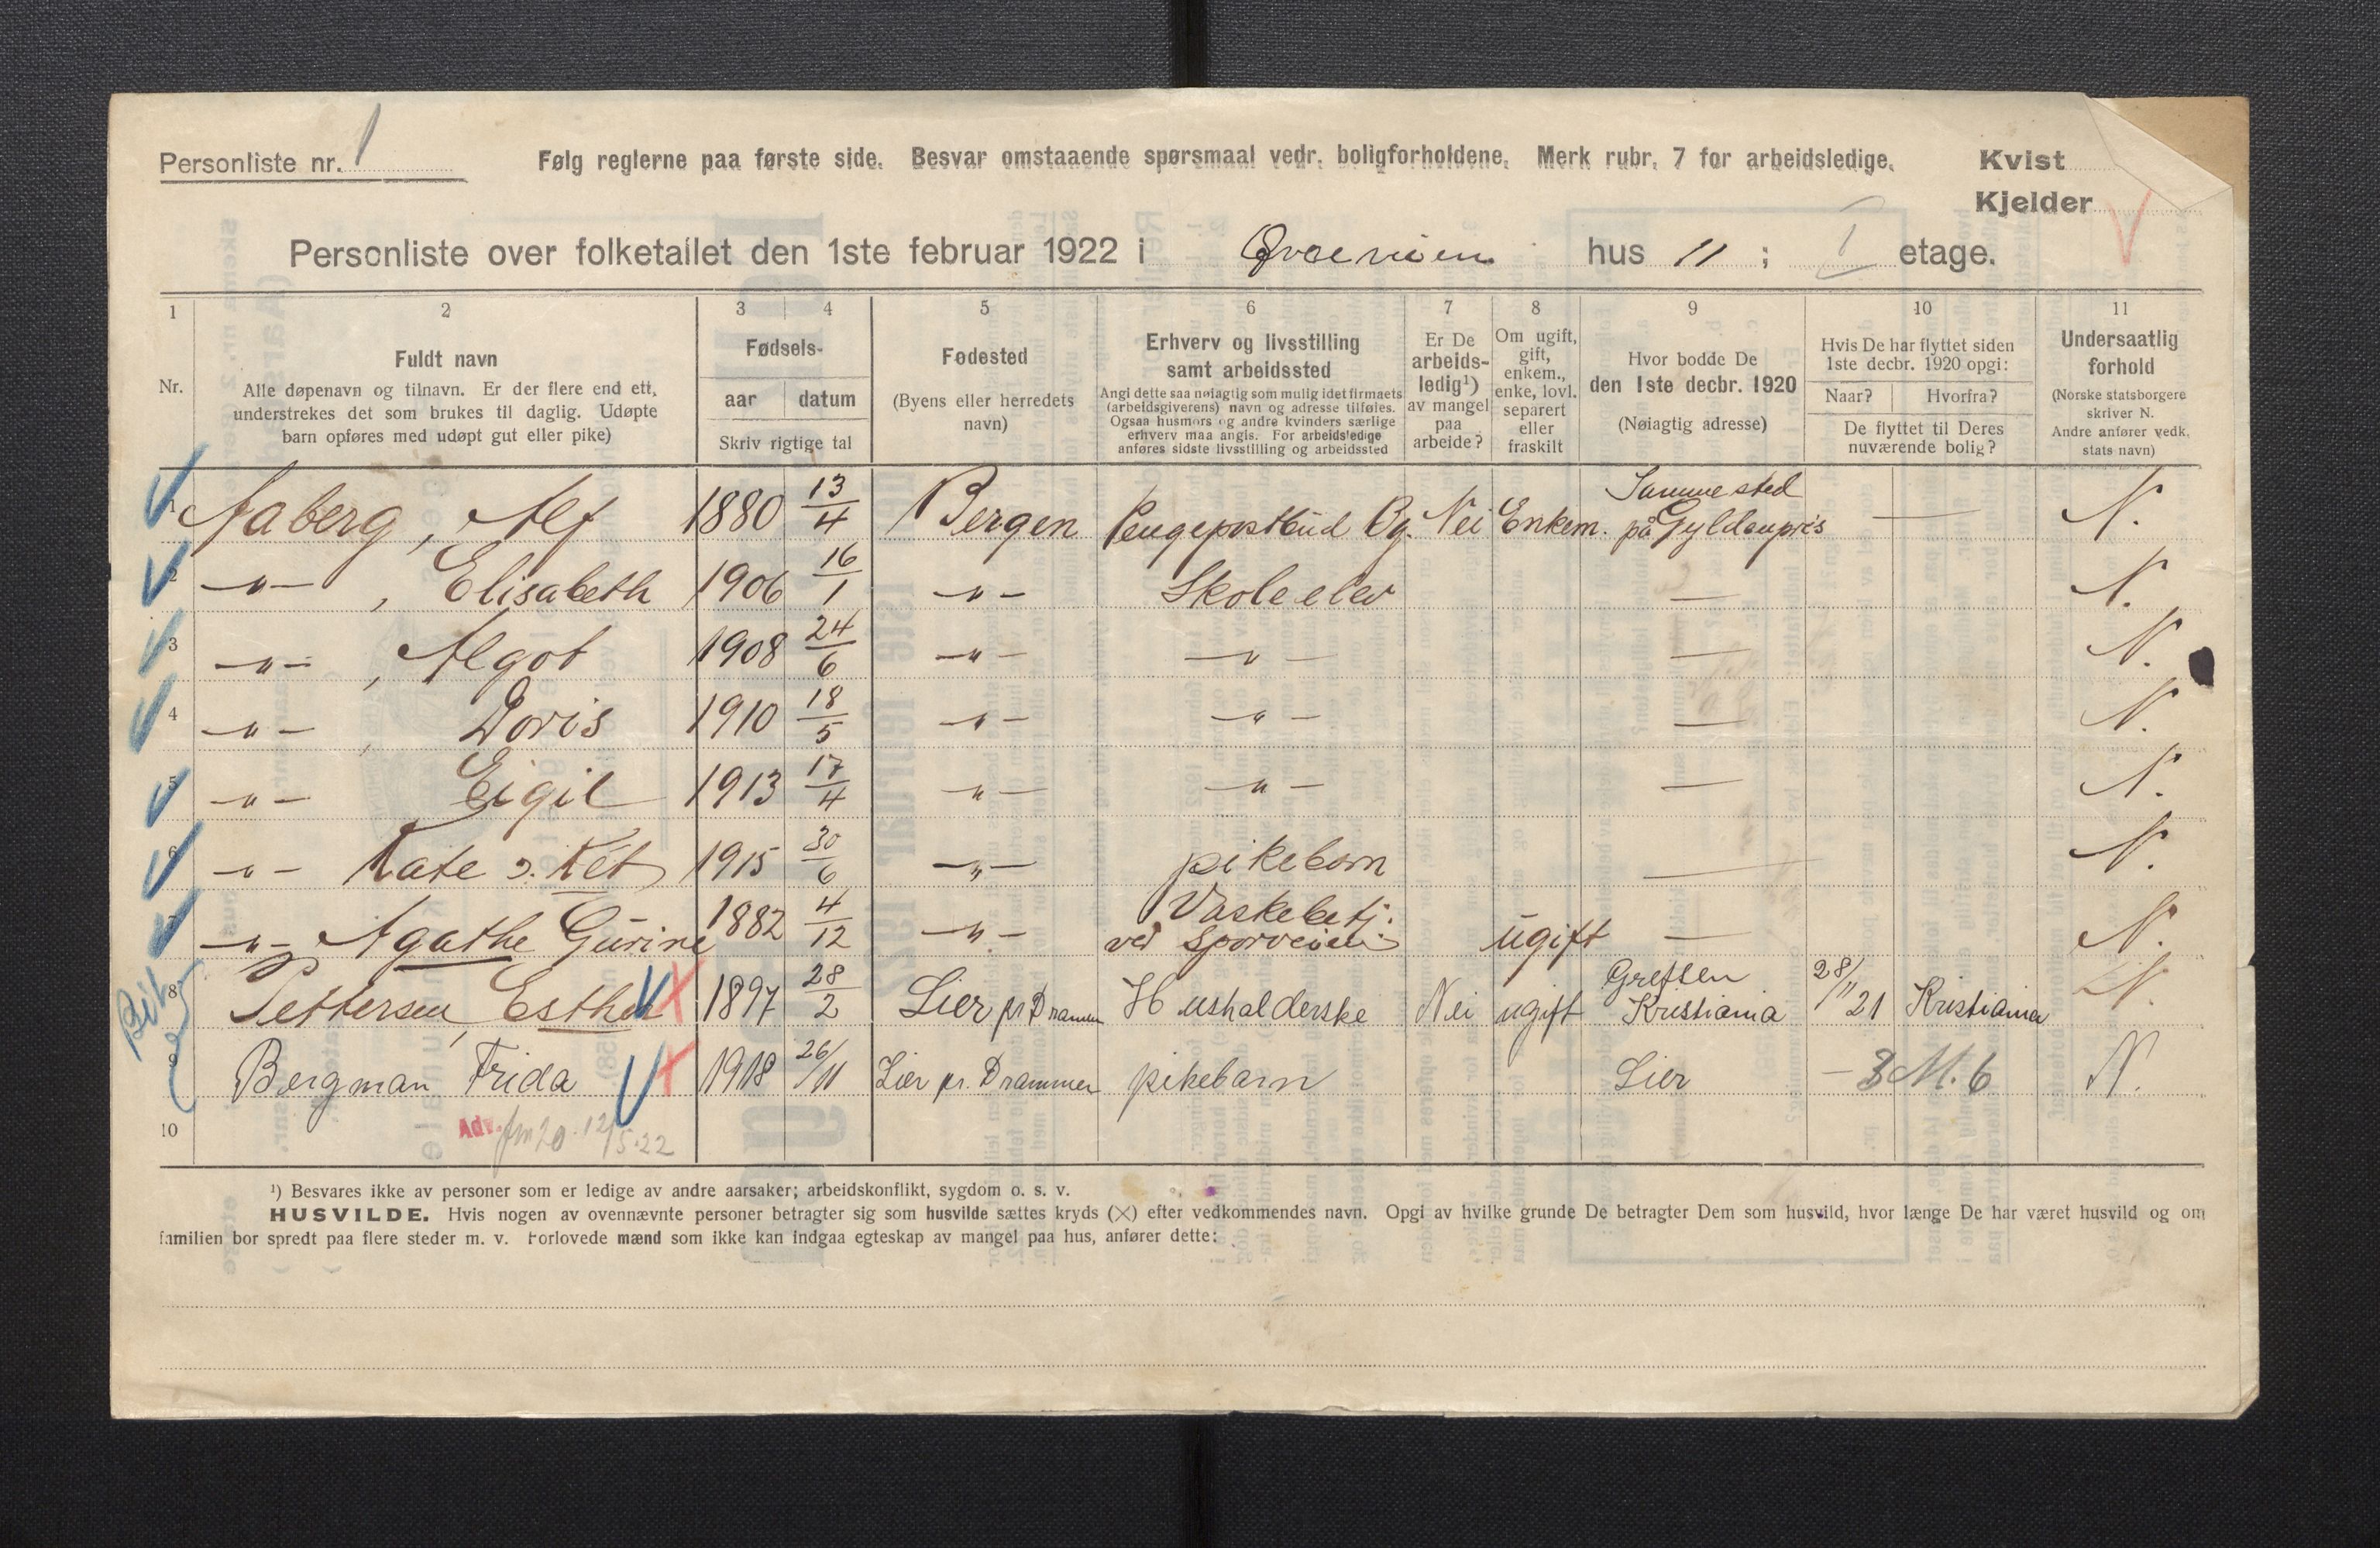 Personliste nr. 1
Følg reglerne paa første side. Besvar omstaaende spørsmaal vedr. boligforholdene. Merk rubr. 7 for arbeidsledige.
Kvist
Kjelder
Personliste over folketallet den 1ste februar 1922 i hus 11 ; I etage.
1 2 3 4 5 6 7 8 9 10 11
Nr.
Fuldt navn
Alle døpenavn og tilnavn. Er der flere end ett,
understrekes det som brukes til daglig. Udøpte
barn opføres med udøpt gut eller pike)
Fødsels-
aar datum
Skriv rigtige tal
Fødested
(Byens eller herredets
navn)
Erhverv og livsstilling
samt arbeidssted
Angi dette saa nøiagtig som mulig idet firmaets
(arbeidsgiverens) navn og adresse tilføies.
Ogsaa husmors og andre kvinders særlige
erhverv maa angis. For arbeidsledige
anføres sidste livsstilling og arbeidssted
Er De
arbeids-
ledig¹)
av mangel
paa
arbeide?
Om ugift,
gift,
enkem.,
enke, lovl.
separert
eller
fraskilt
Hvor bodde De
den 1ste decbr. 1920
(Nøiagtig adresse)
Hvis De har flyttet siden
1ste decbr. 1920 opgi:
Naar? Hvorfra?
De flyttet til Deres
nuværende bolig?
Undersaatlig
forhold
(Norske statsborgere
skriver N.
Andre anfører vedk.
stats navn)
1 Aaberg, Alf 1880 13/4 Bergen Pengepostbud Bg. Nei Enkem. Samme sted på Gyldenpris — N.
2 —"— , Elisabeth 1906 16/1 —"— Skoleelev — N.
3 —"— , Algot 1908 24/6 —"— —"— — N.
4 —"— , Doris 1910 18/5 —"— —"— — N.
5 —"— Eigil 1913 17/4 —"— —"— — N.
6 —"— Kate Ket 1915 30/6 —"— pikebarn — N.
7 —"— Agathe Gurine 1882 4/12 —"— Vaskebetj. ved Sporveien ugift — N.
8 Pettersen, Esther 1897 28/2 Lier pr Drammen Husholderske Nei ugift Grefsen Kristiania 28/11 21 Kristiania N.
9 Bergman Frida 1918 26/11 Lier pr. Drammen pikebarn Lier — 3 M. 6 N.
10
Adv. 20 12/5.22
¹) Besvares ikke av personer som er ledige av andre aarsaker; arbeidskonflikt, sygdom o. s. v.
HUSVILDE. Hvis nogen av ovennævnte personer betragter sig som husvilde sættes kryds (×) efter vedkommendes navn. Opgi av hvilke grunde De betragter Dem som husvild, hvor længe De har været husvild og om
familien bor spredt paa flere steder m. v. Forlovede mænd som ikke kan indgaa egteskap av mangel paa hus, anfører dette: